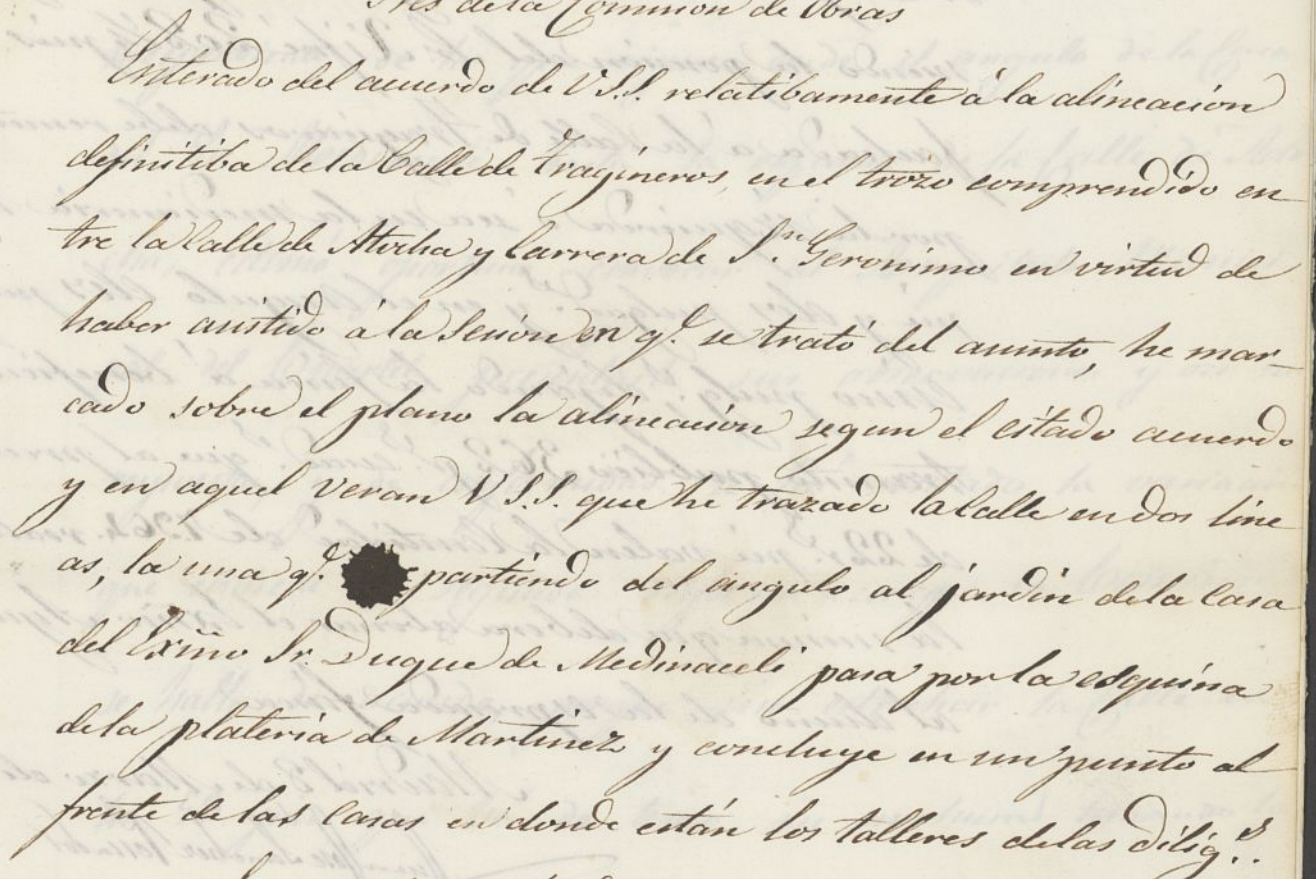 Sres de la Comision de Obras
Enterado del acuerdo de V.S.S. relatibamente á la alineacion
definitiba de la Calle de Tragineros, en el trozo comprendido en
tre la Calle de Atocha y Carrera de Sn. Geronimo en virtud de
haber asistido á la Sesion en qe. se trató del asunto, he mar-
cado sobre el plano la alineacion segun el citado acuerdo
y en aquel veran V.S.S. que he trazado la Calle en dos line
as, la una qe. partiendo del angulo al jardin de la Casa
del Exmo Sr. Duque de Medinaceli pasa por la esquina
de la plateria de Martinez y concluye en un punto al
frente de las Casas en donde están los talleres de las dilig.s